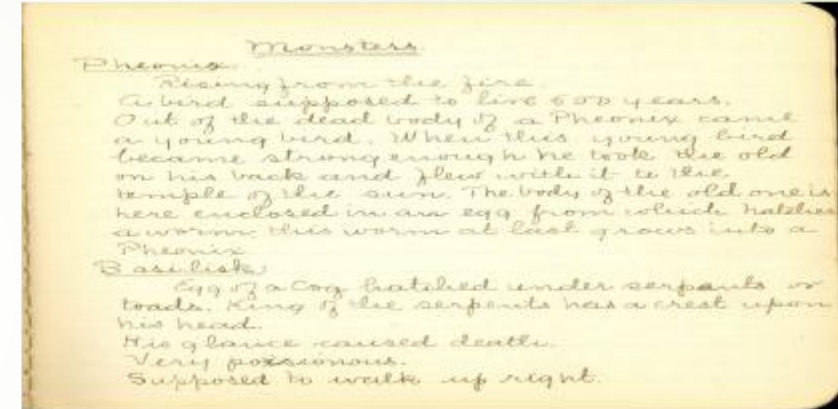 Monsters
Pheonix.
Rising from the fire.
A bird supposed to live 600 years.
Out of the dead body of a Pheonix came
a young bird. When this young bird
became strong enough he took the old
on his back and flew with it to the
temple of the sun. The body of the old one is
here enclosed in an egg from which hatches
a worm, this worm at last grows into a
Pheonix
Basilisk.
Egg of a Coq hatched under serpents or
toads. King of the serpents has a crest upon
his head.
His glance caused death.
Very poisionous.
Supposed to walk up right.